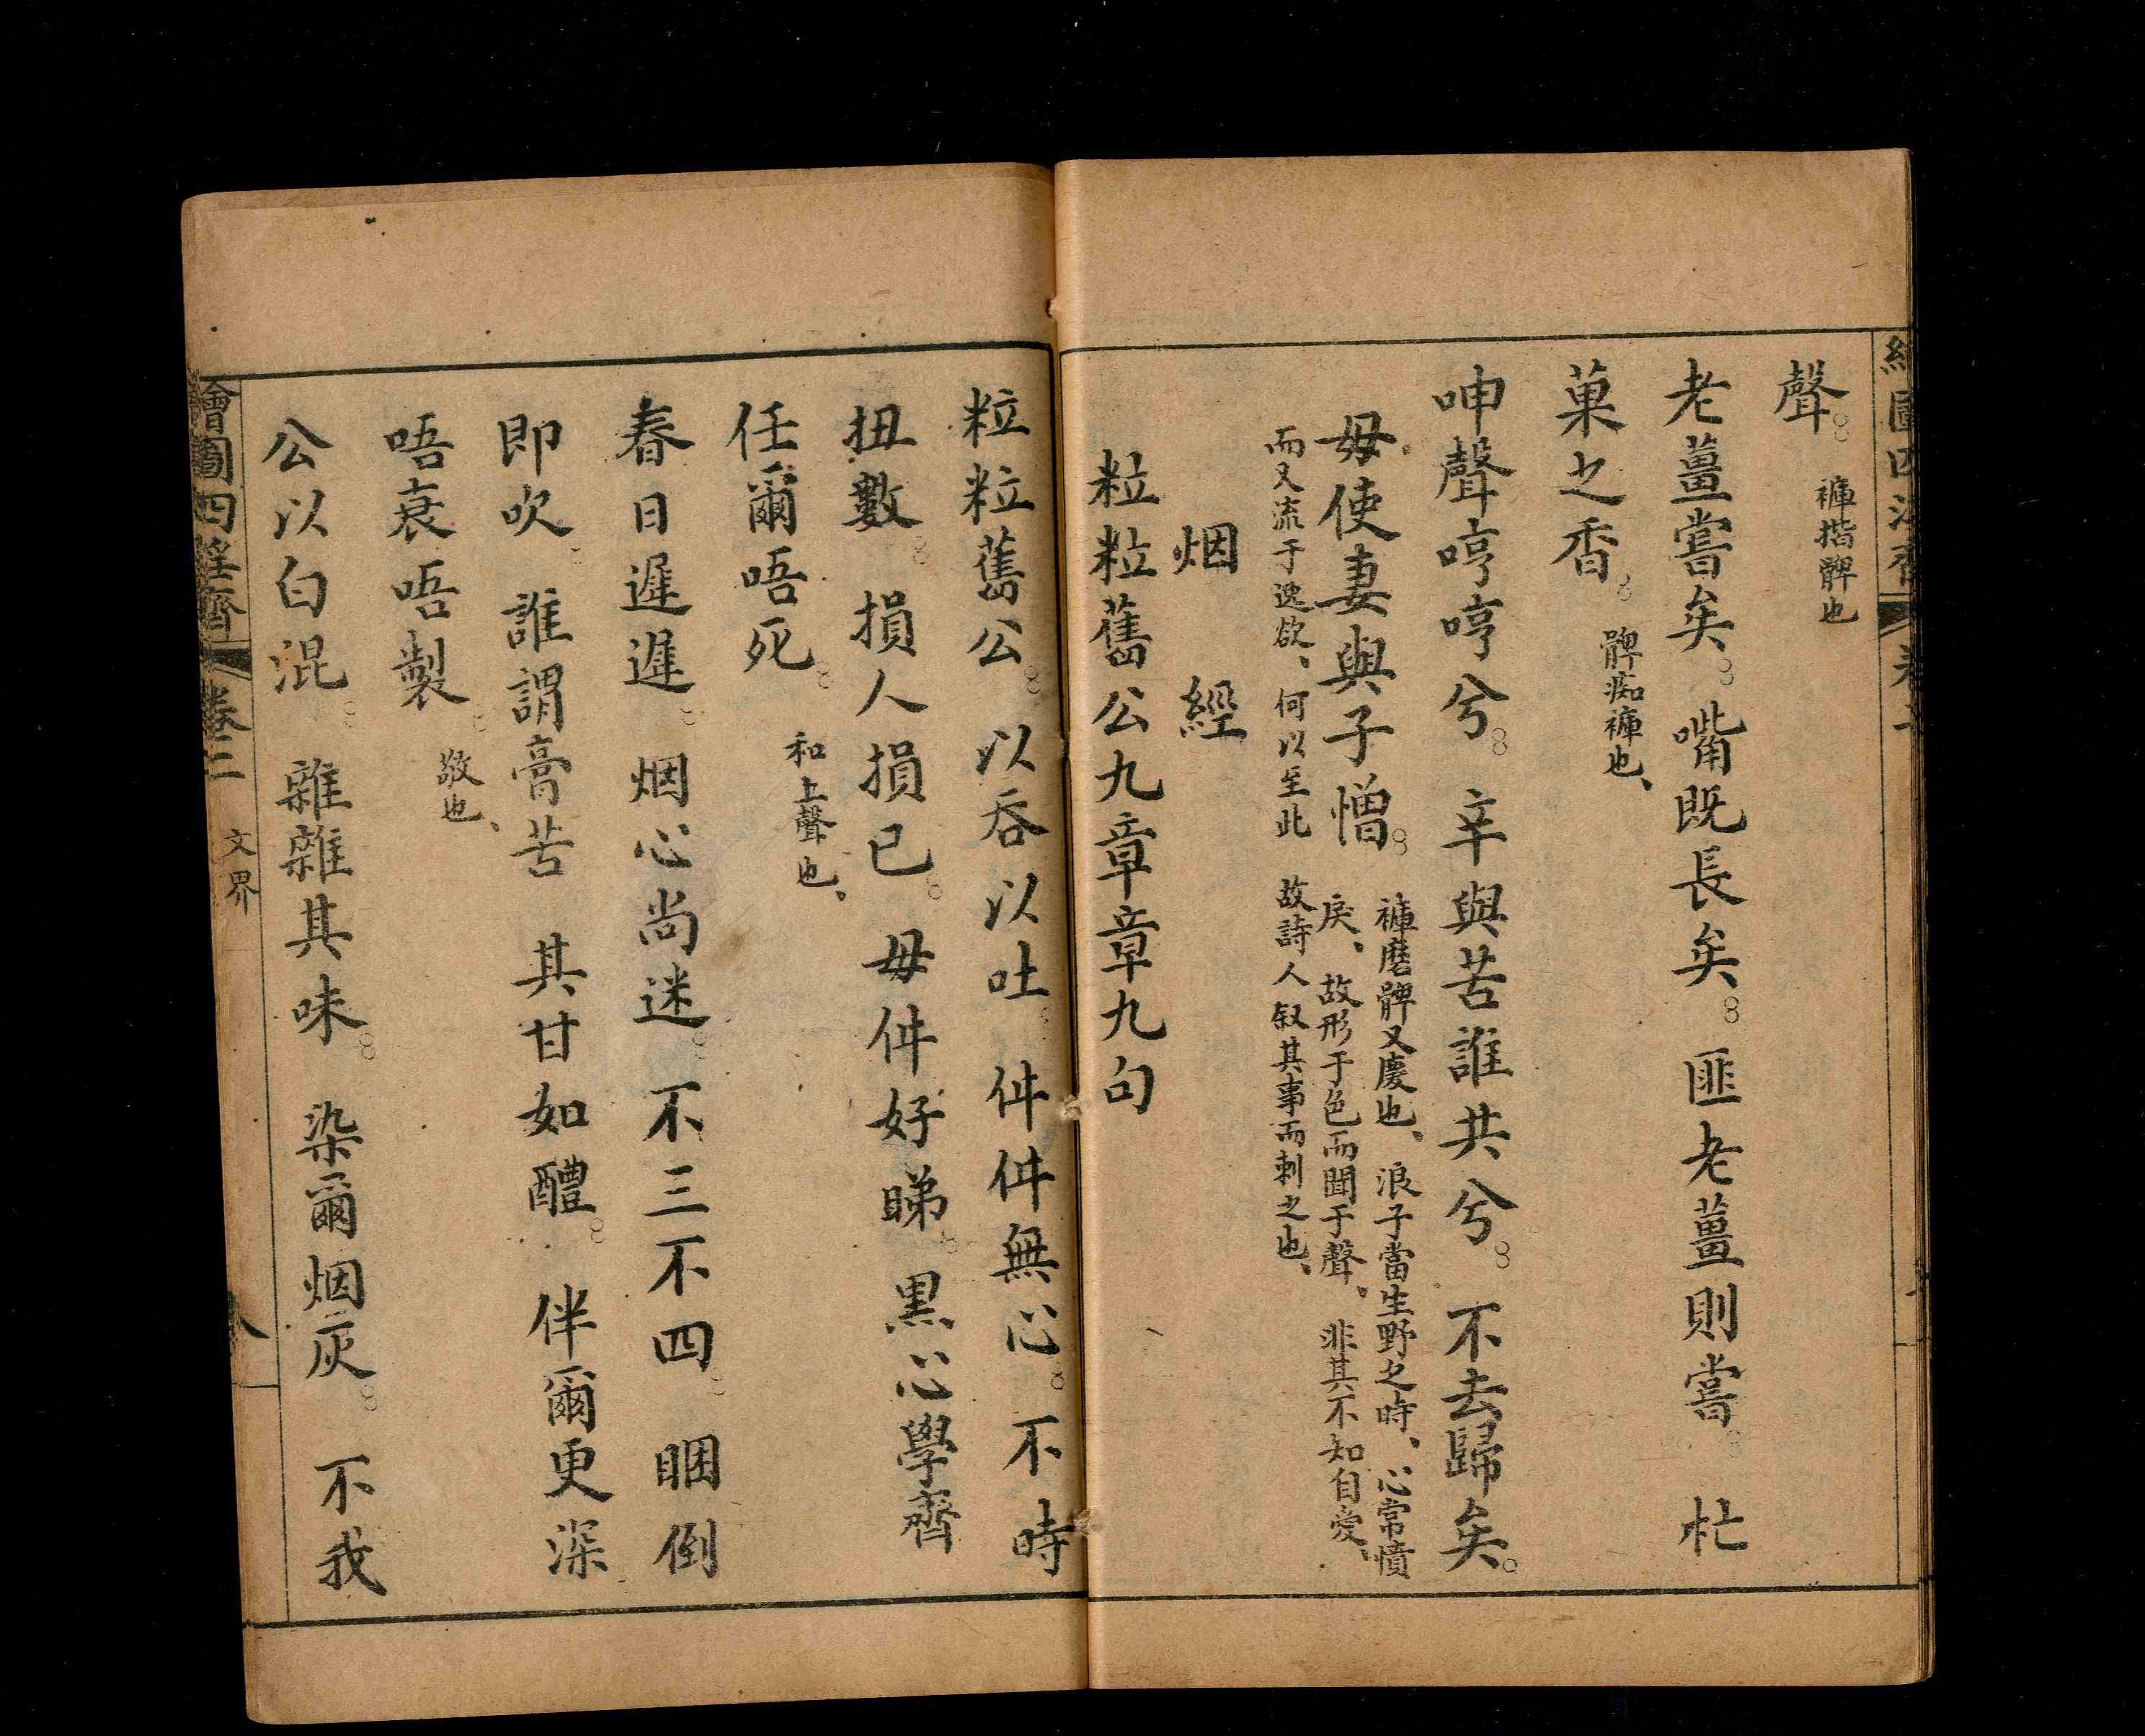 聲。褲揩髀也
老薑嘗矣。嘴既長矣。匪老薑則嘗。杧
菓之香。髀痴褲也、
呻聲哼哼兮。辛與苦誰共兮。不去歸矣。
毋使妻與子憎。褲磨髀又慶也、浪子當生野之時、心常憤
戾、故形于色而聞于聲。非其不知自愛、
而又流于逸欲、何以至此 故詩人叙其事而刺之也、
烟 經
粒粒舊公九章章九句
粒粒舊公。以吞以吐。件件無心。不時
扭數。損人損已。毋件好睇。黑心學齊
任爾唔死。和上聲也。
春日遲遲。烟心尚迷。不三不四。睏倒
即吹。誰謂膏苦 其甘如醴。伴爾更深
唔衰唔製。敬也、
公以白混。雜雜其味。染爾烟灰。不我
繪圖四淫齋 卷二 文界 八